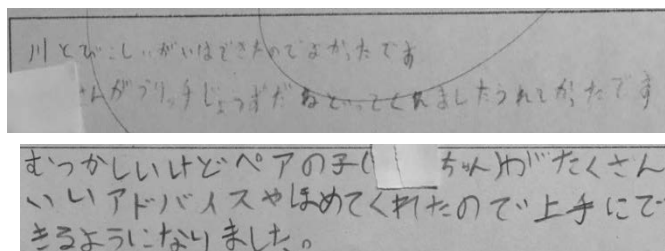 川とびこしいがいはできたのでよかったです
さんがブリッチじょうずだねといってくれましたうれしかったです
むつかしいけどペアの子(ちゃん)がたくさん
いいアドバイスやほめてくれたので上手にで
きるようになりました。